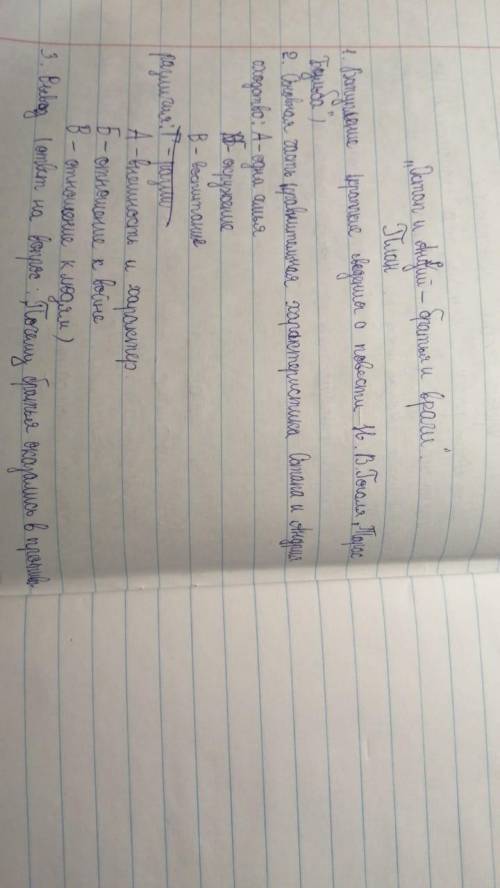 "Остап и Андрий – братья и враги".
План
1. Вступление (краткие сведения о повести Н. В. Гоголя "Тарас
Бульба")
2. Основная часть (сравнительная характеристика Остапа и Андрия
сходство: А – одна семья
Б – окружение
В – воспитание
различия:
А – внешность и характер
Б – отношение к войне
В – отношение к людям)
3. Вывод (ответ на вопрос: "Почему братья оказались в против